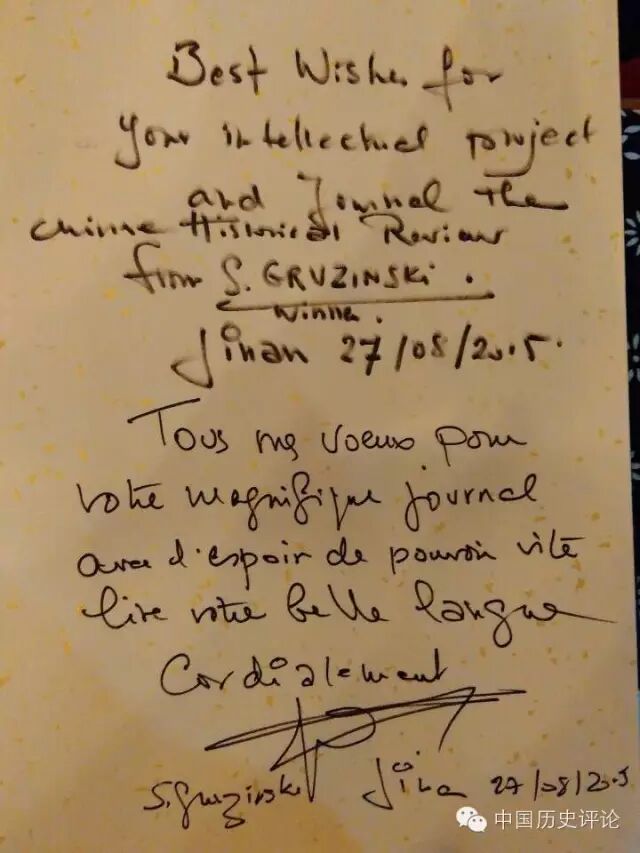 Best Wishes for
your intellectual project
and Journal the
chinese Historical Review
from S. GRUZINSKI.
winner.
Jinan 27/08/2015.
Tous mes voeux pour
votre magnifique journal
avec l'espoir de pouvoir vite
lire votre belle langue
Cordialement
S. Gruzinski Jinan 27/08/2015
中国历史评论